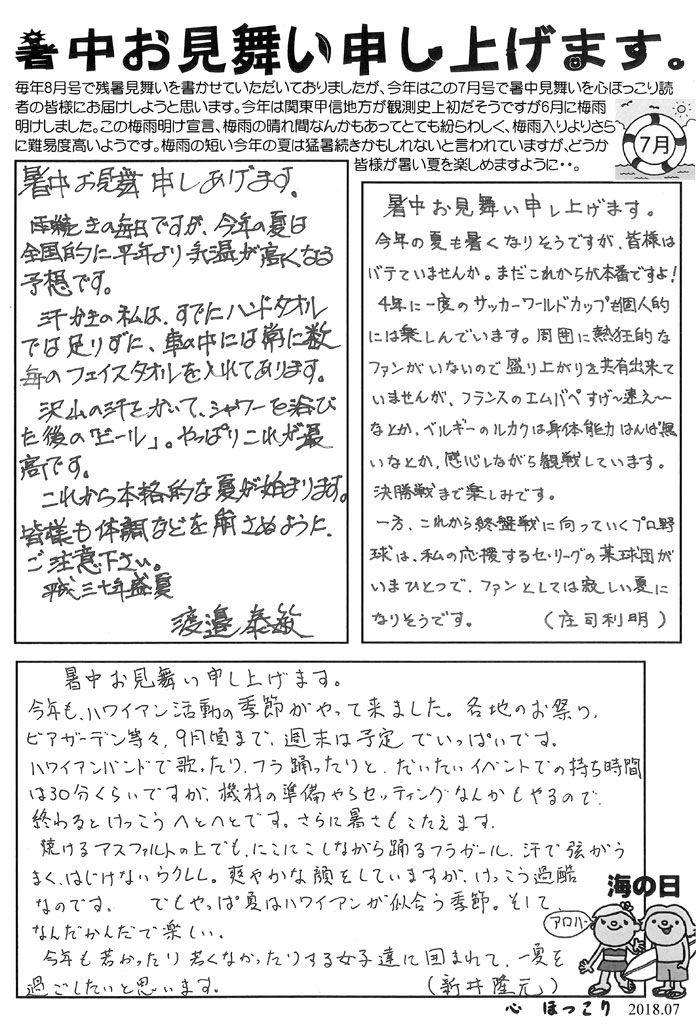 暑中お見舞い申し上げます。
毎年8月号で残暑見舞いを書かせていただいておりましたが、今年はこの7月号で暑中見舞いを心ほっこり読
者の皆様にお届けしようと思います。今年は関東甲信地方が観測史上初だそうですが6月に梅雨
明けしました。この梅雨明け宣言、梅雨の晴れ間なんかもあってとても紛らわしく、梅雨入りよりさら
に難易度高いようです。梅雨の短い今年の夏は猛暑続きかもしれないと言われていますが、どうか
皆様が暑い夏を楽しめますように・・。
7月
暑中お見舞申しあげます。
毎日ですが、今年の夏は
全国的に平年より気温が高くなる
予想です。
汗かきの私は、すでにハンドタオル
では足りずに、車の中には常に数
毎のフェイスタオルを入れてあります。
沢山の汗をかいて、シャワーを浴び
た後の「ビール」。やっぱりこれが最
高です。
これから本格的な夏が始まります。
皆様も体調などを崩さぬように、
ご注意下さい。
平成三十年盛夏
渡邉泰敏
暑中お見舞い申し上げます。
今年の夏も暑くなりそうですが、皆様は
バテていませんか。まだこれからが本番ですよ!
4年に一度のサッカーワールドカップも個人的
には楽しんでいます。周囲に熱狂的な
ファンがいないので盛り上がりを共有出来て
いませんが、フランスのエムバペすげ〜速え〜
なとか、ベルギーのルカクは身体能力はんぱ無
いなとか、感心しながら観戦しています。
決勝戦まで楽しみです。
一方、これから終盤戦に向っていくプロ野
球は、私の応援するセ・リーグの某球団が
いまひとつで、ファンとしては寂しい夏に
なりそうです。 (庄司利明)
暑中お見舞い申し上げます。
今年も、ハワイアン活動の季節がやって来ました。各地のお祭り、
ビアガーデン等々、9月頃まで、週末は予定でいっぱいです。
ハワイアンバンドで歌ったり、フラ踊ったりと、だいたいイベントでの持ち時間
は30分くらいですが、機材の準備やらセッティングなんかもやるので、
終わるとけっこうへとへとです。さらに暑さもこたえます。
焼けるアスファルトの上でも、にこにこしながら踊るフラガール、汗で弦がう
まく、はじけないウクレレ。爽やかな顔をしていますが、けっこう過酷
なのです。 でもやっぱ夏はハワイアンが似合う季節。そして、
なんだかんだで楽しい。
今年も若かったり若くなかったりする女子達に囲まれて、一夏を
過ごしたいと思います。 (新井隆元)
海の日
アロハ〜
心 ほっこり 2018.07